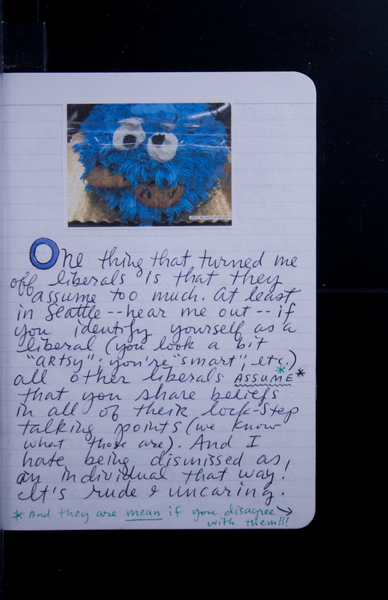 One thing that turned me
off liberals is that they
assume too much. At least
in Seattle -- hear me out -- if
you identify yourself as a
liberal (you look a bit
"artsy"; you're "smart", etc.)
all other liberals ASSUME*
that you share beliefs
in all of their lock-step
talking points (we know
what those are). And I
hate being dismissed as,
an individual that way.
It's rude & uncaring.
*And they are mean if you disagree →
with them!!!